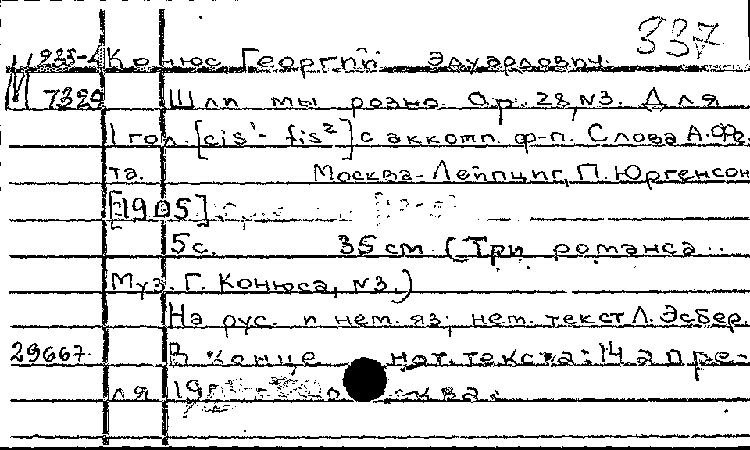 337
Конюс Георгий Эдуардович.
М 7320 Шли мы розно. Op. 28, N3. Для
1 гол. [cis¹- fis²] с аккомп. ф-п. Слова А. Фе-
та. Москва-Лейпциг, П. Юргенсон
[1905]
5 с. 35 см (Три романса..
Муз. Г. Конюса, N3.)
На рус. и нем. яз; нем. текст Л. Эсбер.
29667 В конце нот. текста: 14 апре-
ля